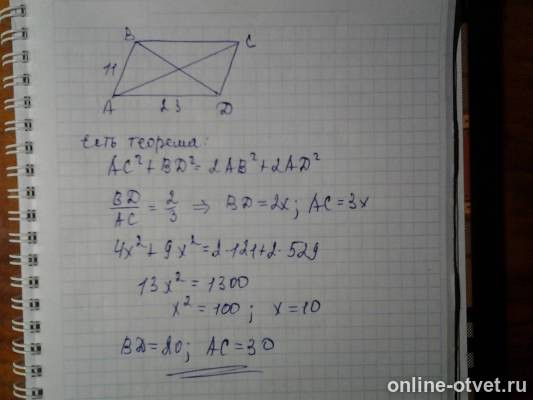 B C
11
A 23 D
Есть теорема:
AC² + BD² = 2AB² + 2AD²
BD/AC = 2/3 ⇒ BD = 2x; AC = 3x
4x² + 9x² = 2·121 + 2·529
13x² = 1300
x² = 100; x = 10
BD = 20; AC = 30
online-otvet.ru